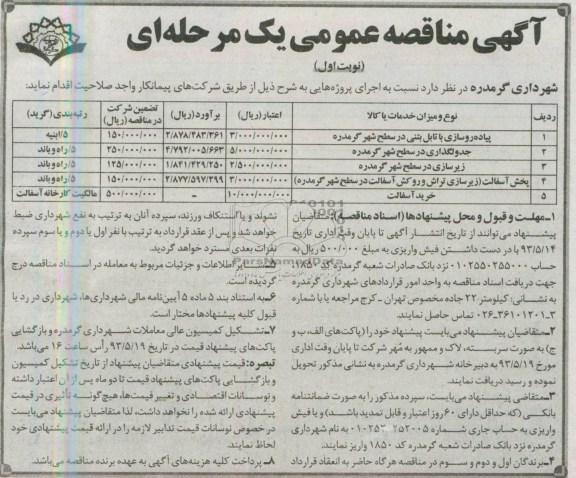 آگهی مناقصه عمومی یک مرحله‌ای
(نوبت اول)
شهرداری گرمدره در نظر دارد نسبت به اجرای پروژه‌هایی به شرح ذیل از طریق شرکت‌های پیمانکار واجد صلاحیت اقدام نماید:
ردیف نوع و میزان خدمات یا کالا اعتبار (ریال) برآورد (ریال) تضمین شرکت در مناقصه (ریال) رتبه بندی (گرید)
۱ پیاده‌روسازی با تایل بتنی در سطح شهر گرمدره ۳/۰۰۰/۰۰۰/۰۰۰ ۲/۸۷۸/۴۸۳/۳۶۱ ۱۵۰/۰۰۰/۰۰۰ ۵/ابنیه
۲ جدولگذاری در سطح شهر گرمدره ۵/۰۰۰/۰۰۰/۰۰۰ ۴/۷۹۲/۰۰۵/۶۶۳ ۲۵۰/۰۰۰/۰۰۰ ۵/راه و باند
۳ زیرسازی در سطح شهر گرمدره ۲/۵۰۰/۰۰۰/۰۰۰ ۱/۸۴۱/۴۲۹/۲۵۰ ۱۲۵/۰۰۰/۰۰۰ ۵/راه و باند
۴ پخش آسفالت (زیرسازی تراش و روکش آسفالت در سطح شهر گرمدره) ۳/۰۰۰/۰۰۰/۰۰۰ ۲/۸۷۷/۵۹۷/۲۹۹ ۱۵۰/۰۰۰/۰۰۰ ۵/راه و باند
۵ خرید آسفالت ۱۰/۰۰۰/۰۰۰/۰۰۰ ۵۰۰/۰۰۰/۰۰۰ مالکیت کارخانه آسفالت
۱ـ مهلت و قبول و محل پیشنهادها (اسناد مناقصه): متقاضیان
پیشنهاد می‌توانند از تاریخ انتشار آگهی تا پایان وقت اداری تاریخ
۹۳/۵/۱۴ با در دست داشتن فیش واریزی به مبلغ ۵۰۰/۰۰۰ ریال به
حساب ۰۱۰۲۵۵۰۲۵۵۰۰۰ نزد بانک صادرات شعبه گرمدره کد ۱۸۵۰
جهت دریافت اسناد مناقصه به واحد امور قراردادهای شهرداری گرمدره
به نشانی: کیلومتر ۲۲ جاده مخصوص تهران ـ کرج مراجعه یا با شماره
۳ـ۳۶۱۰۱۲۰۱ـ۰۲۶ تماس حاصل نمایند.
۲ـ متقاضیان پیشنهاد می‌بایست پیشنهاد خود را (پاکت‌های الف، ب و
ج) به صورت سربسته، لاک و ممهور به مُهر شرکت تا پایان وقت اداری
مورخ ۹۳/۵/۱۹ به دبیرخانه شهرداری گرمدره به نشانی مذکور تحویل
نموده و رسید دریافت نمایند.
۳ـ متقاضی پیشنهاد می‌بایست، سپرده مذکور را به صورت ضمانتنامه
بانکی (که حداقل دارای ۶۰ روز اعتبار و قابل تمدید باشد.) و یا فیش
واریزی به حساب جاری شماره به نام شهرداری
گرمدره نزد بانک صادرات شعبه گرمدره کد ۱۸۵۰ واریز نمایند.
۴ـ برندگان اول و دوم و سوم در مناقصه هرگاه حاضر به انعقاد قرارداد
نشوند و یا استنکاف ورزند، سپرده آنان به ترتیب به نفع شهرداری ضبط
خواهد شد و پس از عقد قرارداد به ترتیب با نفر اول یا دوم و یا سوم سپرده
نفرات بعدی مسترد خواهد گردید.
۵ـ سایر اطلاعات و جزئیات مربوط به معامله در اسناد مناقصه درج
گردیده است.
۶ـ به استناد بند ۵ ماده ۵ آیین‌نامه مالی شهرداری‌ها، شهرداری در رد یا
قبول کلیه پیشنهادها مختار است.
۷ـ تشکیل کمیسیون عالی معاملات شهرداری گرمدره و بازگشایی
پاکت‌های پیشنهاد قیمت در تاریخ ۹۳/۵/۱۹ رأس ساعت ۱۶ می‌باشد.
تبصره: قیمت پیشنهادی متقاضیان پیشنهاد از تاریخ تشکیل کمیسیون
و بازگشایی پاکت‌های پیشنهاد قیمت تا دو ماه پس از آن اعتبار داشته
و نوسانات اقتصادی و تغییر قیمت‌ها، هیچ‌گونه تأثیری در قیمت
پیشنهادی ارائه شده را نخواهد داشت، لذا متقاضیان پیشنهاد می‌بایست
در خصوص نوسانات قیمت تدابیر لازمه را در ارائه قیمت پیشنهادی خود
لحاظ نمایند.
۸ـ پرداخت کلیه هزینه‌های آگهی به عهده برنده مناقصه می‌باشد.
ParsNamadData